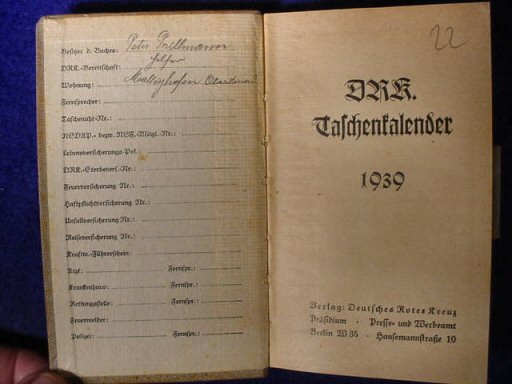 Besitzer d. Buches: Peter Brillmannn
DRK.-Bereitschaft: Helfer
Wohnung:
Fernsprecher:
Taschenuhr-Nr.:
NSDAP.- bezw. NSF.-Mitgl.-Nr.:
Lebensversicherungs-Pol.:
DRK.-Sterbevers.-Nr.:
Feuerversicherung Nr.:
Haftpflichtversicherung Nr.:
Unfallversicherung Nr.:
Reiseversicherung Nr.:
Kraftw.-Führerschein:
Arzt: Fernspr.:
Krankenhaus: Fernspr.:
Rettungsstelle: Fernspr.:
Feuermelder:
Polizei: Fernspr.:
22
DRK.
Taschenkalender
1939
Verlag: Deutsches Rotes Kreuz
Präsidium · Presse- und Werbeamt
Berlin W 35 · Hansemannstraße 10